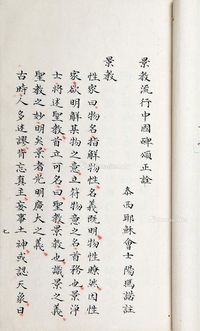 景教流行中國碑頌正詮
泰西耶穌會士陽瑪諾註
景教
性家曰物名指解物性名義既明物性暸然因性
家欲明解某物之意立符物意之名首務也景淨
士將述聖教首立可名曰聖教景教也識景之義
聖教之妙明矣景者光明廣大之義
古時人多迷謬背忘真主妄事土神或認天象日
七